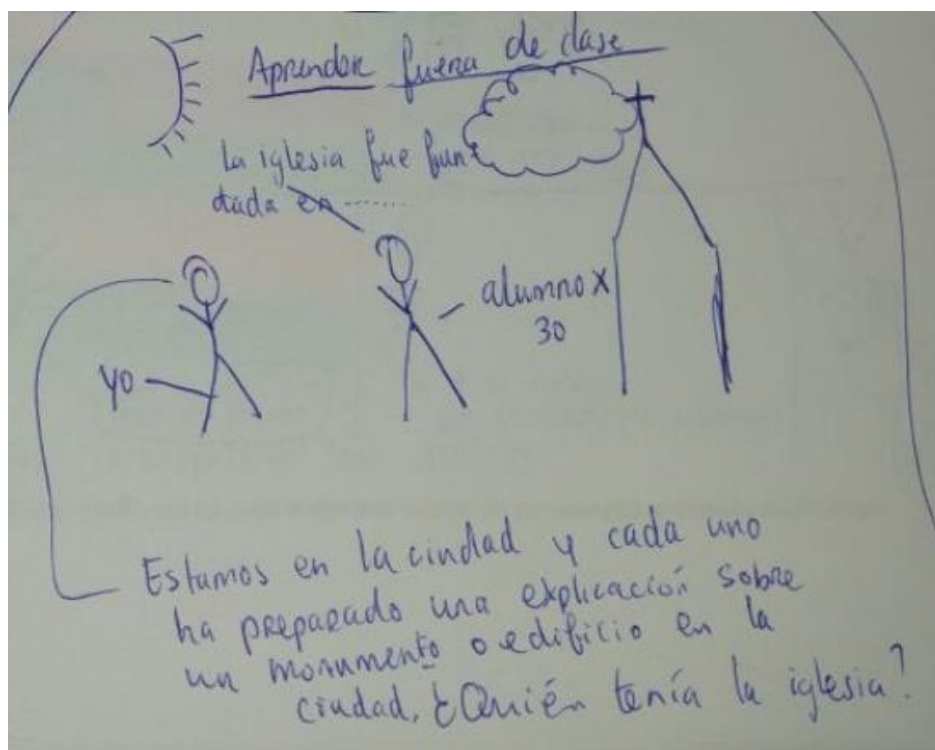 Aprender fuera de clase
La iglesia fue fun
dada en ........
alumno X
30
yo
Estamos en la ciudad y cada uno
ha preparado una explicación sobre
un monumento o edificio en la
ciudad, ¿Quién tenía la iglesia?